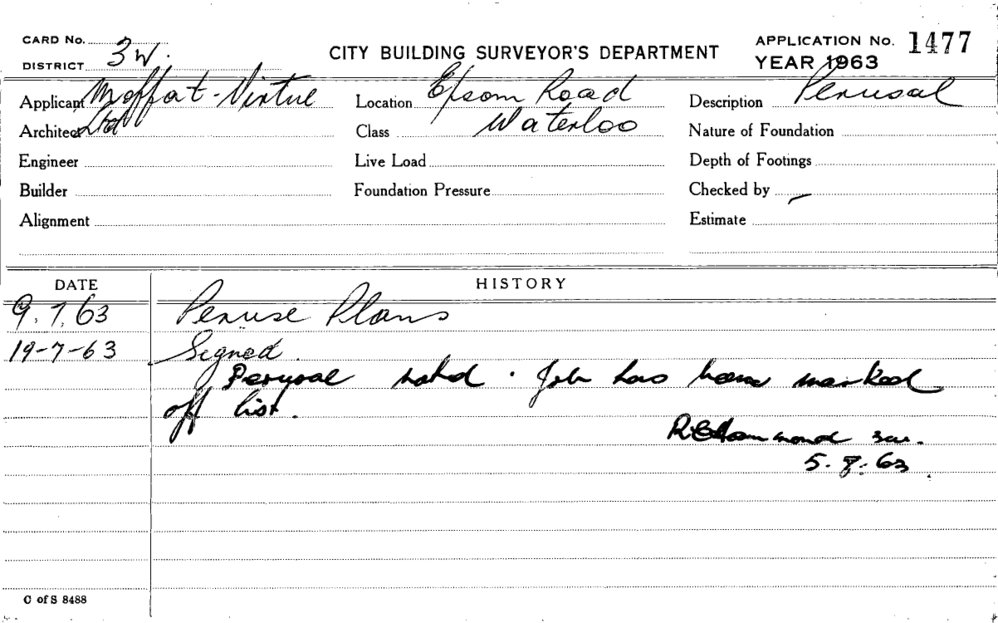 CARD No.
DISTRICT 3W.
CITY BUILDING SURVEYOR'S DEPARTMENT
APPLICATION No. 1477
YEAR 1963
Applicant Moffat-Virtue
Architect Ltd
Engineer
Builder
Alignment
Location Epsom Road
Class Waterloo
Live Load
Foundation Pressure
Description Perusal
Nature of Foundation
Depth of Footings
Checked by
Estimate
DATE HISTORY
9.7.63 Peruse Plans
19-7-63 Signed.
Perusal noted. Job has been marked
off list.
R Hammond 3w.
5.8.63
C of S 8488